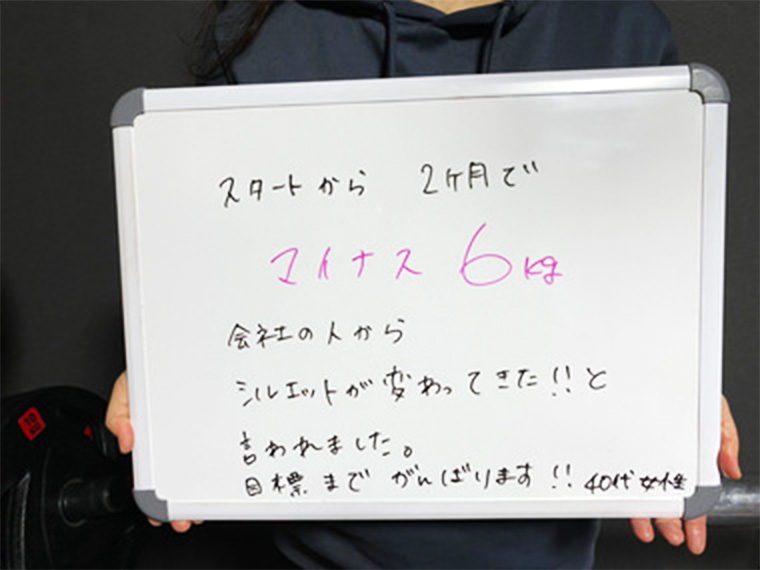 スタートから 2ヶ月で
マイナス 6kg
会社の人から
シルエットが変わってきた!!と
言われました。
目標までがんばります!! 40代女性